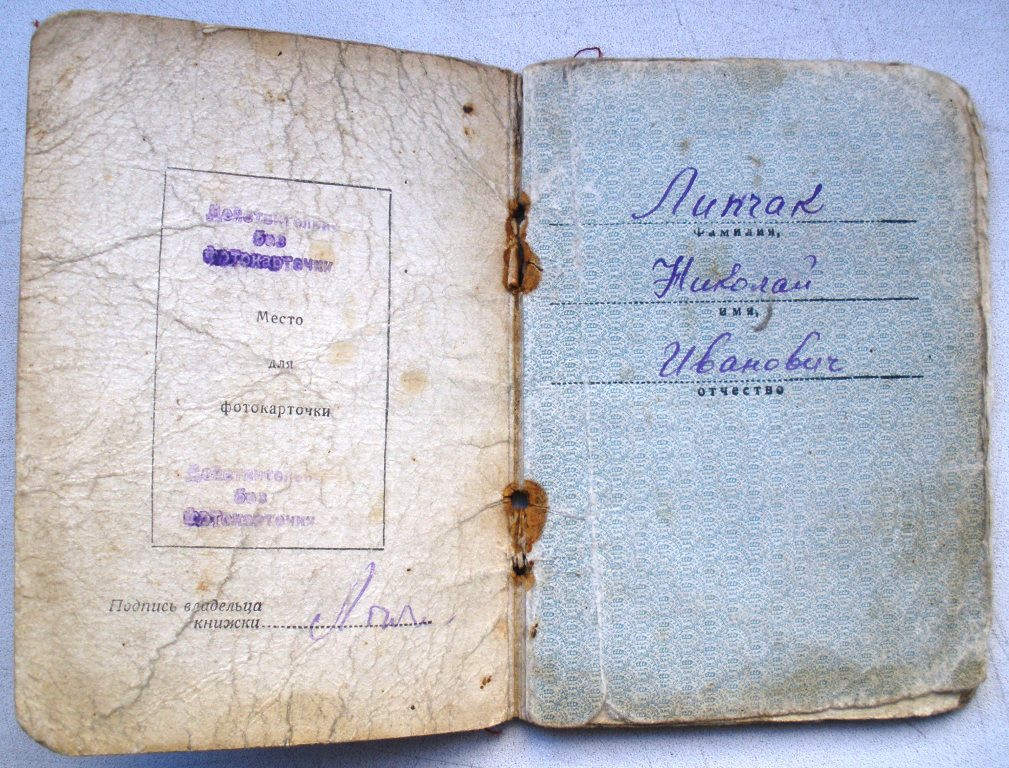 Действительно
без
фотокарточки
Место
для
фотокарточки
Действительно
без
фотокарточки
Подпись владельца
книжки
Липчак
фамилия,
Николай
имя,
Иванович
отчество